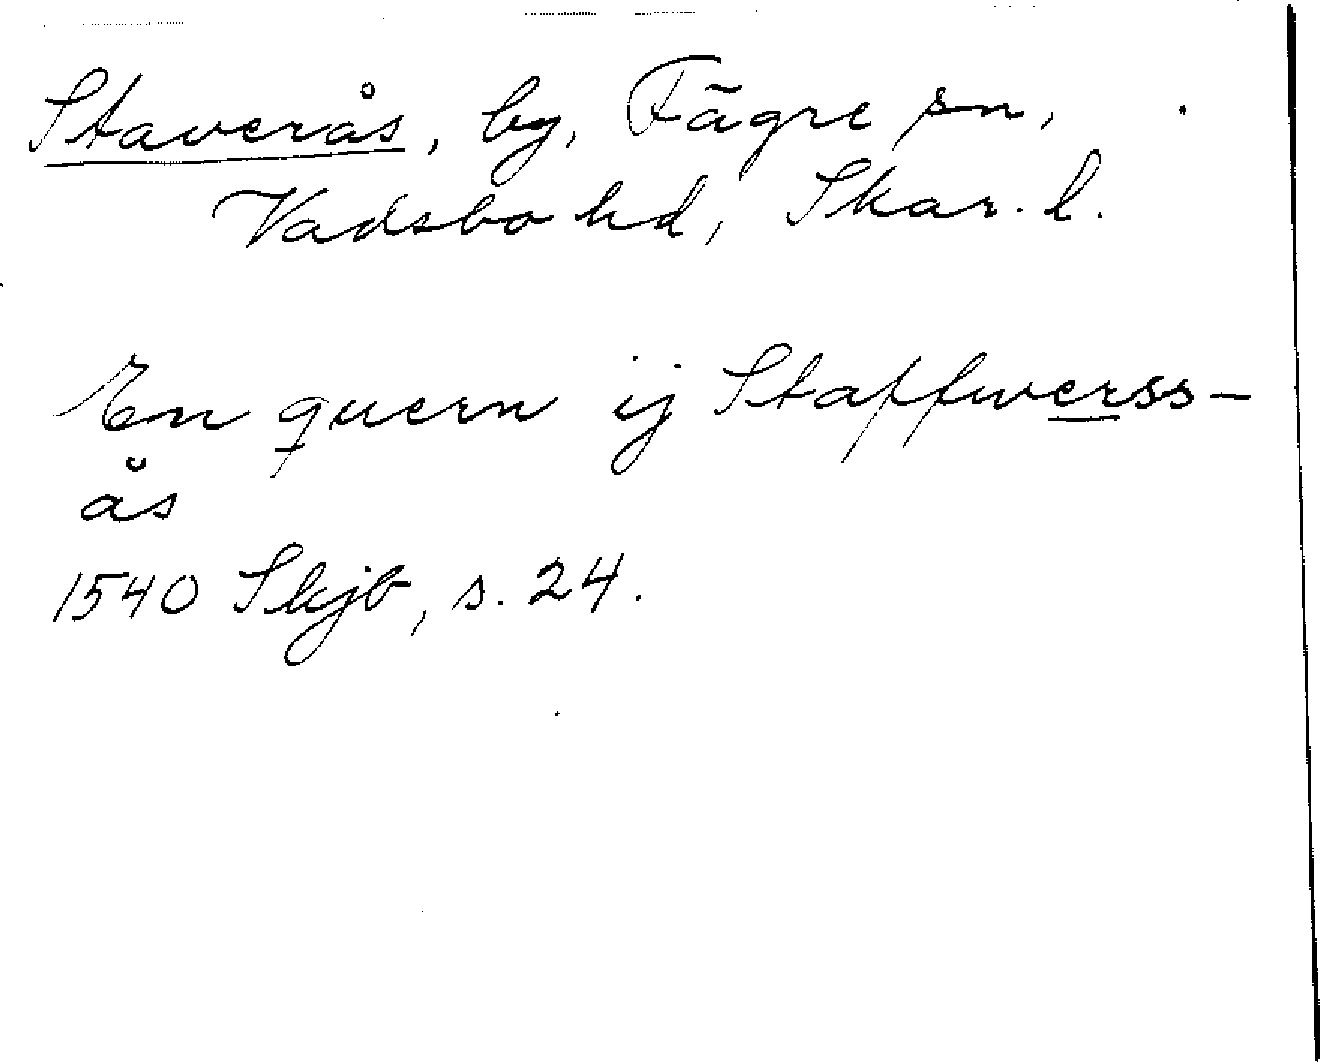 Staverås, by, Fägre sn,
Vadsbo hd, Skar. l.
En quern ij Staffwerss-
ås
1540 Skjb, s. 24.